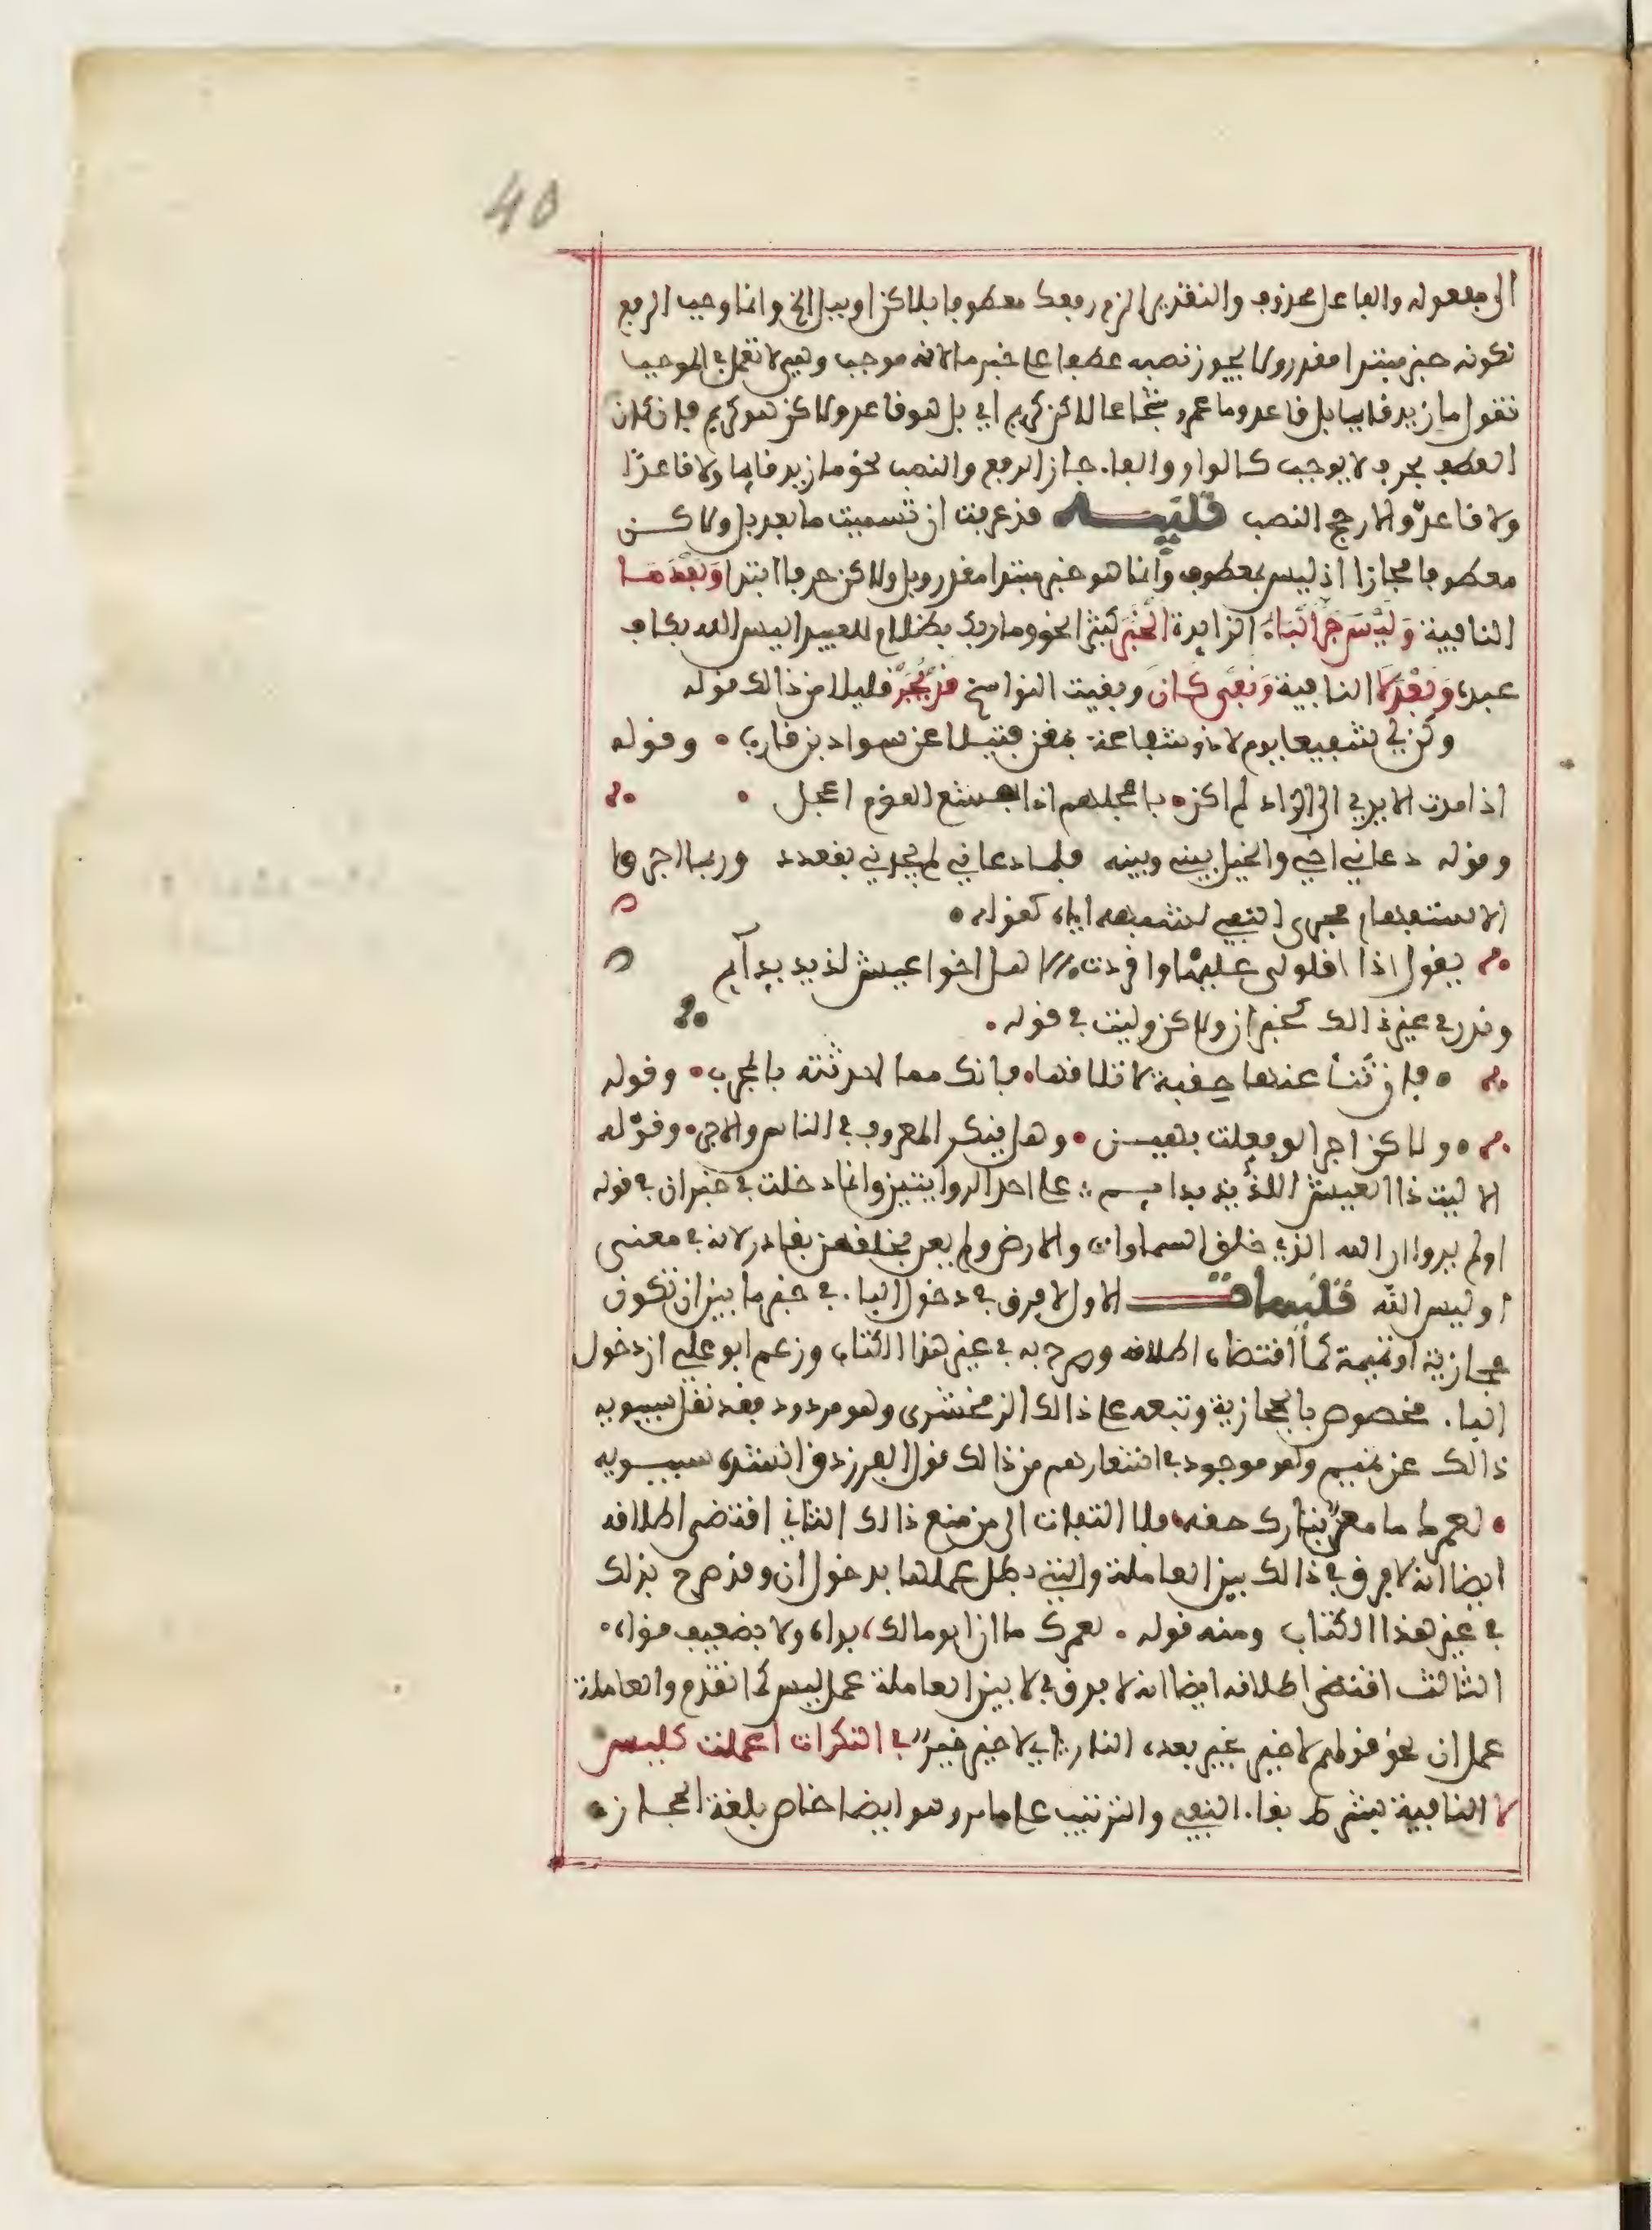 40
الى مفعوله والفاعل محذوف والتقدير الزم رفعك معطوفا بلاكن او ببل الخ وانما وجب الرفع
لكونه خبر مبتدا مقدر ولا يجوز نصبه عطفا على خبر ما لانه موجب وهي لا تعمل في الموجب
تقول ما زيد قايما بل قاعد وما عمرو شجاعا لاكن كريم اي بل هو قاعد ولاكن هو كريم فان كان
العطف بحرف لا يوجب كالواو والفاء جاز الرفع والنصب نحو ما زيد قايما ولا قاعدًا
ولا قاعدٌ والارجح النصب تنبيــه قد عرفت ان تسميت ما بعد بل ولاكــن
معطوفا مجازا اذ ليس بمعطوف وانما هو خبر مبتدا مقدر وبل ولاكن حرفا ابتدا وَبَعْدَ مَــا
النافية وَلَيْسَ جَرَّ الْبَاءُ الزايدة الْخَبَرْ كثيرا نحو وما ربك بظلام للعبيد اليس الله بكاف
عبده وَبَعْدَ لَا النافية وَنَفْيِ كَانَ وبقيت النواسخ قَدْ يُجَرّْ قليلا من ذالك قوله
وكن لي شفيعا يوم لا ذو شفاعة بمغن فتيلا عن سواد بن قارب • وقوله
اذا مدت الايدي الى الزاد لم اكن • باعجلهم اذ اجشع القوم اعجل •
وقوله دعاني اخي والخيل بيني وبينه فلما دعاني لم يجدني بقعدد وربما اجروا
الاستفهام مجرى النفي لشبهه اياه كقوله •
يقول اذا اقلولى عليها واقردت الا هل اخوا عيش لذيذ بدايم
وندر في غير ذالك كخبر ان ولاكن وليت في قوله •
• فان تنا عنها حقبة لا تلاقها • فانك مما احدثت بالمجرب • وقوله
• ولاكن اجرا لو فعلت بهيــن • وهل ينكر المعروف في الناس والاجر • وقوله
الا ليت ذا العيش اللذيذ بدايــم : على احد الروايتين وانما دخلت في خبر ان في قوله
اولم يروا ان الله الذي خلق السماوات والارض ولم يعي بخلقهن بقادر لانه في معنى
اوليس الله تنبيهات الاول لا فرق في دخول الباء في خبر ما بين ان تكون
حجازية او تميمية كما اقتضاه اطلاقه وصرح به في غير هذا الكتاب وزعم ابو علي ان دخول
الباء مخصوص بالحجازية وتبعه على ذالك الزمخشري وهو مردود فقد نقل سيبويه
ذالك عن تميم وهو موجود في اشعارهم من ذالك قول الفرزدق انشده سيبــويه
• لعمرك ما معن بتارك حقه • فلا التفات الى من منع ذالك الثاني اقتضى اطلاقه
ايضا انه لا فرق في ذالك بين العاملة والتي بطل عملها بدخول ان وقد صرح بذلك
في غير هذا الكتاب ومنه قوله • لعمرك ما ان ابو مالك، بواه ولا بضعيف قواه •
الثالث اقتضى اطلاقه ايضا انه لا فرق في لا بين العاملة عمل ليس كما تقدم والعاملة
عمل ان نحو قولهم لا خير بخير بعده النار اي لا خير خيرٌ في النكرات اعملت كليس
لا النافية بشرط بقاء النفي والترتيب على ما مر وهو ايضا خاص بلغة الحجاز •